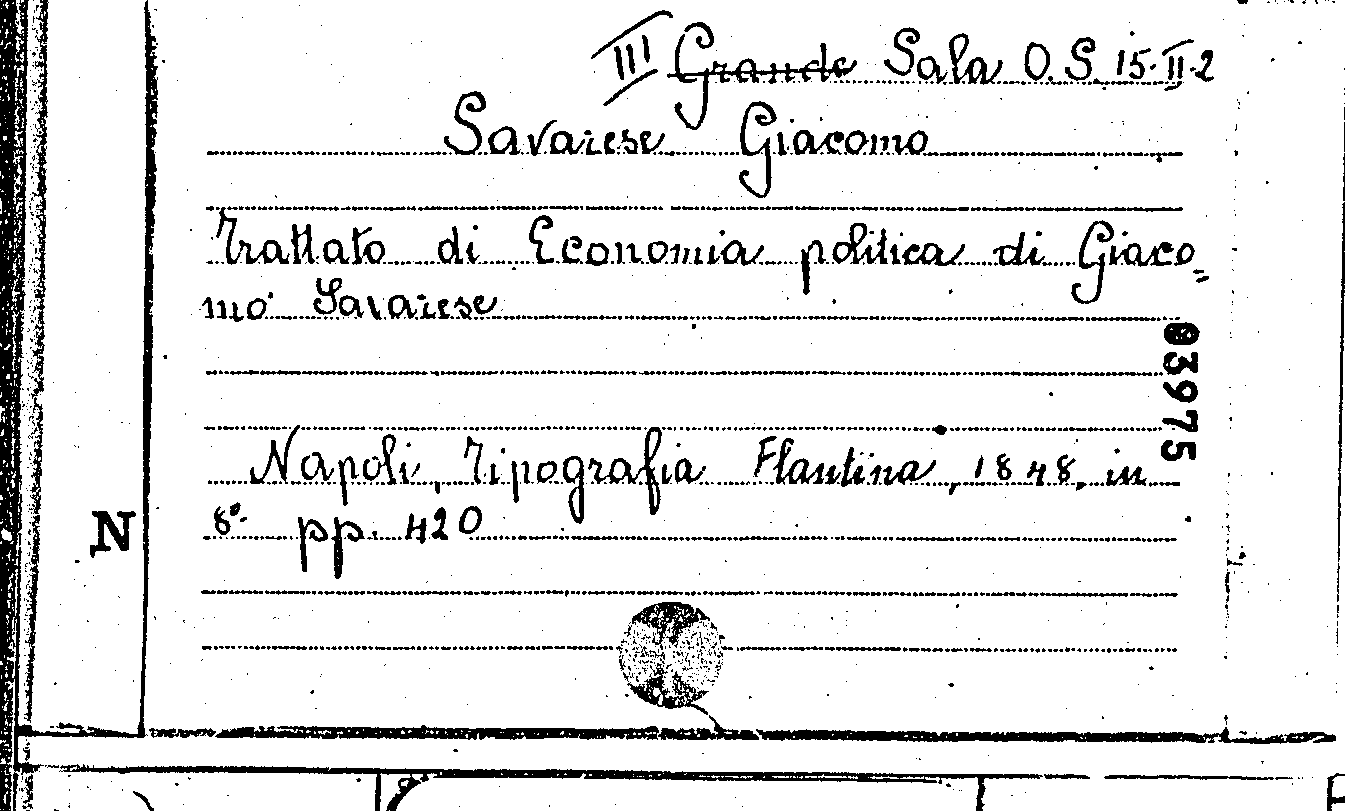 III Grande Sala O.S. 15.II.2
Savarese Giacomo
Trattato di Economia politica di Giaco=
mo Savarese
03975
Napoli, Tipografia Flautina, 1848, in
8º pp. 420
N